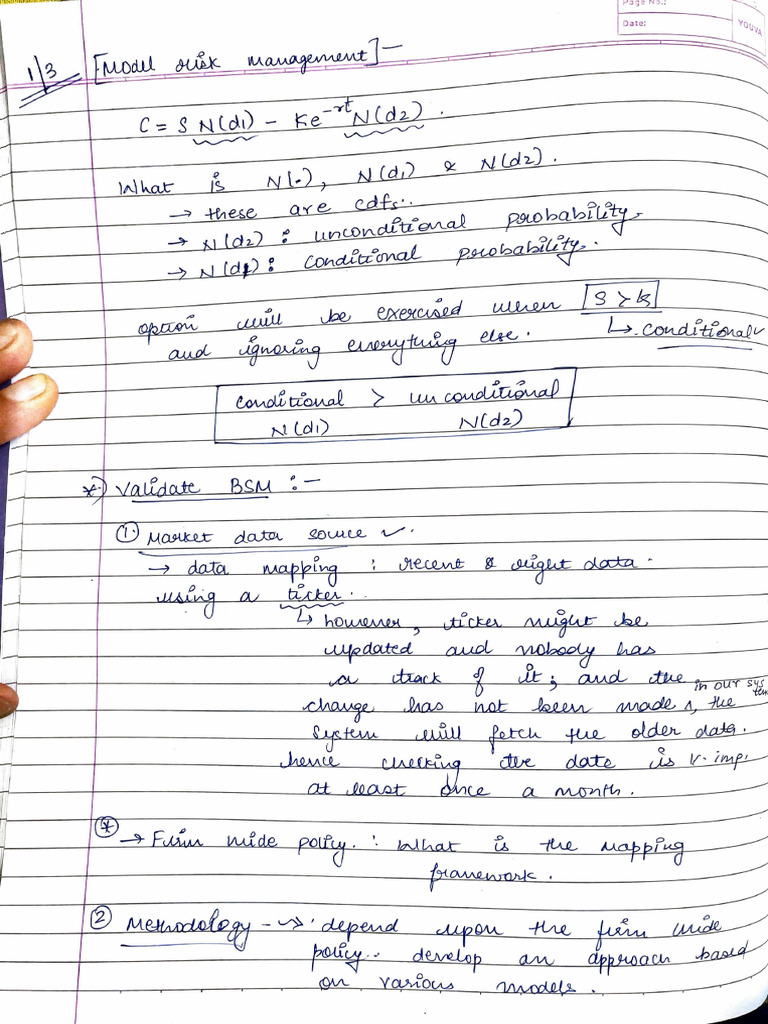 Page No.:
Date:
YOUVA
1/3 [Model risk management] -
C = S N(d1) - Ke^-rt N(d2).
What is N(.), N(d1) & N(d2).
→ these are cdfs..
→ N(d2) : unconditional probability.
→ N(d1) : conditional probability.
option will be exercised when [S > K]
and ignoring everything else. ↳ conditional ✓
conditional > unconditional
N(d1) N(d2)
*) Validate BSM :-
① Market data source ✓.
→ data mapping : recent & right data.
using a ticker.
↳ however, ticker might be
updated and nobody has
a track of it; and the
change has not been made ^ in our system, the
system will fetch the older data.
hence checking the date is v. imp.
at least once a month.
* → Firm wide policy. : What is the mapping
framework.
② Methodology - → depend upon the firm wide
policy.. develop an approach based
on various models.